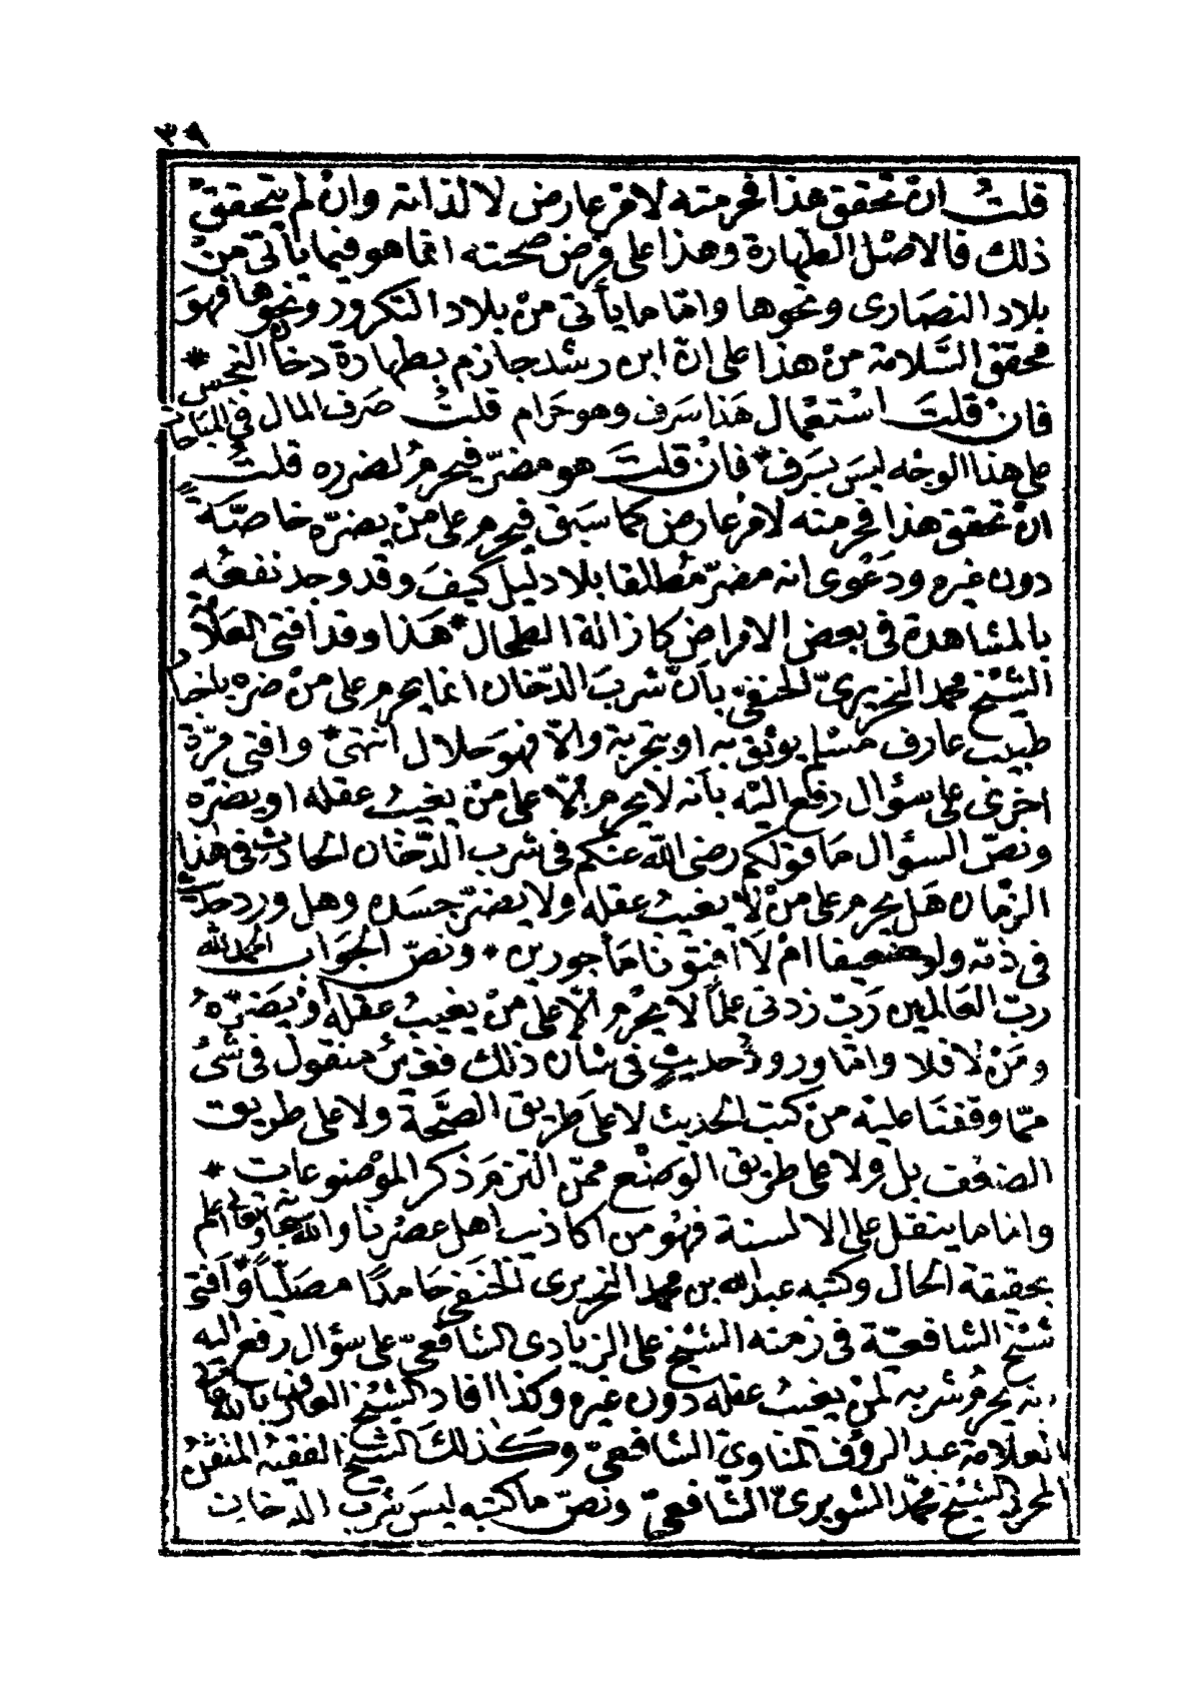 ٣٩
قلتُ انْ تحقق هذا فحرمته لامر عارض لا لذاته وانْ لم يتحققْ
ذلك فالاصْل الطهارة وهذا على فرض صحته انما هو فيما يأتي منْ
بلاد النصَارى ونحوها وامّا ما يأتي منْ بلاد التكرور ونحوها فهوَ
محقق السَّلامة منْ هذا على انّ ابن رشد جازم بطهارة دخان النجس *
فانْ قلتَ استعْمال هَذا سَرف وهو حَرام قلتُ صَرف المال في المبَاحات
على هذا الوجْه ليسَ بسَرف * فانْ قلتَ هو مضرّ فيحرمُ لضرره قلتُ
انْ تحقق هذا فحرمته لامْر عارض كما سَبق فيحرم على منْ يضرّه خاصّة
دون غيره ودَعْوى انه مضرّ مُطلقا بلا دليل كيفَ وقد وجد نفعُه
بالمشاهدة في بعض الامراض كازالة الطحال * هَذا وقد أفتى العَلاّمة
الشيْخ محمد النحريريّ الحنفيّ بأنّ شربَ الدّخان انما يحرم على منْ ضره باخبار
طبيب عارف مسْلم يوثق به او بتجربة والاّ فهوَ حَلال انتهىَ * وافتى مرّة
اخرى على سؤال رفع اليْه بأنه لا يحرم الاّ على منْ يغيبُ عقله او يضرّه
ونصّ السؤال مَا قولكم رضي الله عنكم في شرب الدّخان الحَادث في هَذا
الزمان هَل يحرم على منْ لا يغيبُ عقله ولا يضرّ جسَده وهل ورد حديث
في ذمّه ولو ضعيفا امْ لاَ افتونا مَأجورين * ونصّ الجَواب الحمد لله
ربّ العَالمين رَبّ زدني علماً لا يحْرم الاّ على منْ يغيبُ عقله أوْ يَضرّهُ
ومَنْ لا فلا وامّا ورودُ حديثٍ في شأن ذلك فغيرُ منقول في شيْء
ممّا وقفنَا عليْه منْ كتب الحَديث لا علىَ طريق الصّحّة ولا على طريق
الضعْف بل ولا على طريق الوَضْع ممّن التزمَ ذكر الموْضوعات *
واما ما ينقل على الالسنة فهُو من اكاذيب اهل عصْرنا والله سبحانه وتعالى اعلم
بحقيقة الحال وكتبه عبد الله بن محمد النحريري الحَنفي حَامدًا مصَلّياً * وَافتى
شيْخ الشافعيّة في زمنه الشيْخ على الزيادي الشافعيّ على سؤال رفع اليه
بانه يحرمُ شربه لمنْ يغيبُ عقله دون غيره وكذا افاد الشيْخ العارف بالله تعالى
العلاّمة عبد الرؤف المناويّ الشافعيّ وكَذلكَ الشيْخ الفقيْه المتفنّنُ
المحرر الشيْخ محمّد الشوبريّ الشافعيّ ونصّ ما كتبه ليسَ شرب الدخان